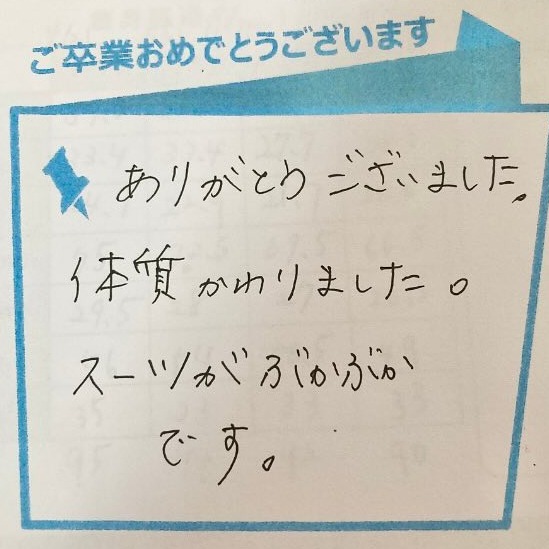 ご卒業おめでとうございます
ありがとうございました。
体質かわりました。
スーツがぶかぶか
です。